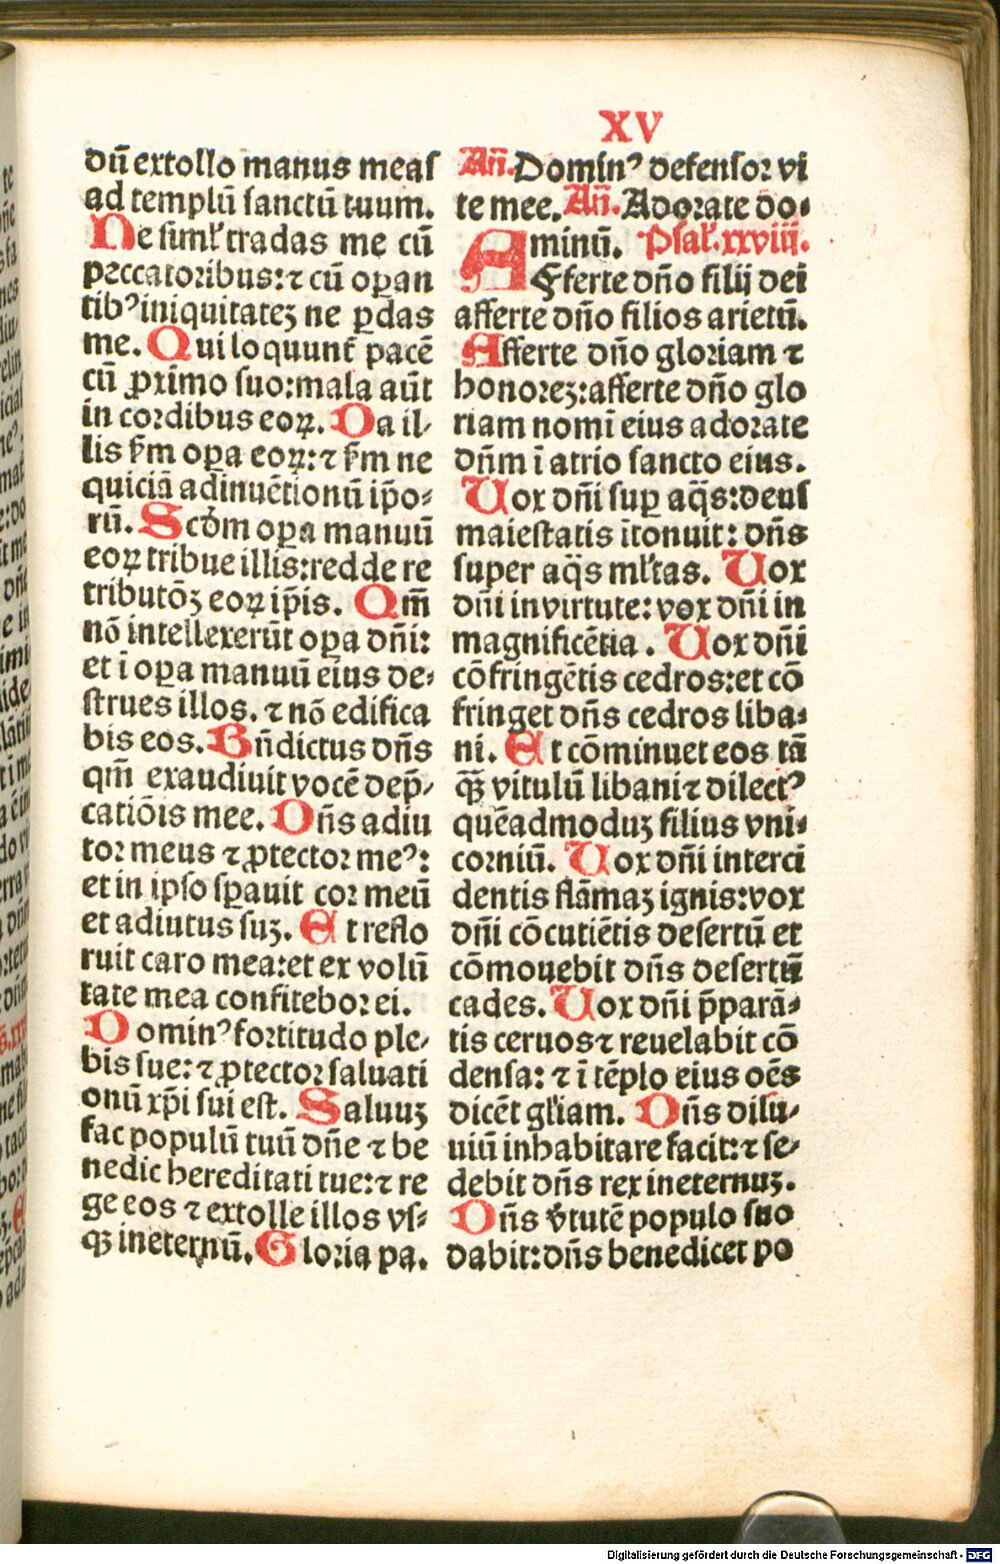 XV
dū extollo manus meas
ad templū sanctū tuum.
Ne siml̛ tradas me cū
peccatoribus: ⁊ cū oꝑan
tibꝰ iniquitateʒ ne ꝑdas
me. Qui loquunt̛ pacē
cū ꝓximo suo: mala aūt
in cordibus eoꝝ. Da il-
lis s̄m oꝑa eoꝝ: ⁊ s̄m ne
quiciā adinuētionū ip̄o-
rū. Scd̄m oꝑa manuū
eoꝝ tribue illis: redde re
tributōʒ eoꝝ ip̄is. Qm̄
nō intellexerūt oꝑa dn̄i:
et ī oꝑa manuū eius de-
strues illos. ⁊ nō edifica
bis eos. Bn̄dictus dn̄s
qm̄ exaudiuit vocē dep̄-
catiōis mee. Dn̄s adiu
tor meus ⁊ ꝓtector meꝰ:
et in ipso sꝑauit cor meū
et adiutus suʒ. Et reflo
ruit caro mea: et ex volū
tate mea confitebor ei.
Dominꝰ fortitudo ple-
bis sue: ⁊ ꝓtector saluati
onū xp̄i sui est. Saluuʒ
fac populū tuū dn̄e ⁊ be
nedic hereditati tue: ⁊ re
ge eos ⁊ extolle illos vs-
qꝫ in eternū. Gloria pa.
Añ. Dominꝰ defensor vi
te mee. Añ. Adorate do-
minū. Psal̛. xxviij.
Afferte dn̄o filij dei
afferte dn̄o filios arietū.
Afferte dn̄o gloriam ⁊
honoreʒ: afferte dn̄o glo
riam nomī eius adorate
dn̄m ī atrio sancto eius.
Vox dn̄i suꝑ aq̄s: deus
maiestatis ītonuit: dn̄s
super aq̄s ml̛tas. Vox
dn̄i in virtute: vox dn̄i in
magnificētia. Vox dn̄i
cōfringētis cedros: et cō
fringet dn̄s cedros liba-
ni. Et cōminuet eos tā
qꝫ̄ vitulū libani ⁊ dilectꝰ
quēadmoduʒ filius vni-
corniū. Vox dn̄i interci
dentis flāmaʒ ignis: vox
dn̄i cōcutiētis desertū et
cōmouebit dn̄s desertū
cades. Vox dn̄i p̄parā-
tis ceruos ⁊ reuelabit cō
densa: ⁊ ī tēplo eius oēs
dicēt gl̛iam. Dn̄s dilu-
uiū inhabitare facit: ⁊ se-
debit dn̄s rex in eternuʒ.
Dn̄s v̛tutē populo suo
dabit: dn̄s benedicet po
Digitalisierung gefördert durch die Deutsche Forschungsgemeinschaft - DFG